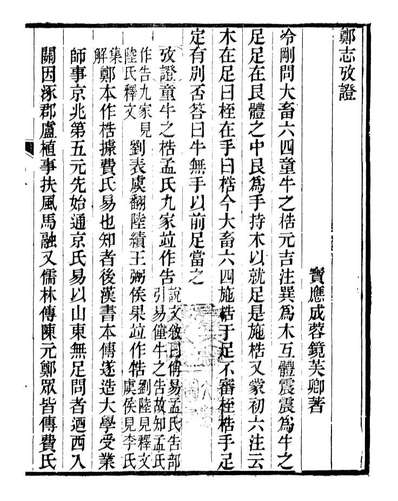 鄭志攷證
寶應成蓉鏡芙卿著
冷剛問大畜六四童牛之梏元吉注巽爲木互體震震爲牛之
足足在艮體之中艮爲手持木以就足是施梏又蒙初六注云
木在足曰桎在手曰梏今大畜六四施梏于足不審桎梏手足
定有別否答曰牛無手以前足當之
攷證童牛之梏孟氏九家竝作告說文敘曰偁易孟氏告部引易僮牛之告故知孟氏
作告九家見陸氏釋文劉表虞翻陸績王弼侯果竝作牿劉陸見釋文虞侯見李氏
集解鄭本作梏據費氏易也知者後漢書本傳遂造大學受業
師事京兆第五元先始通京氏易以山東無足問者迺西入
關因涿郡盧植事扶風馬融又儒林傳陳元鄭眾皆傳費氏